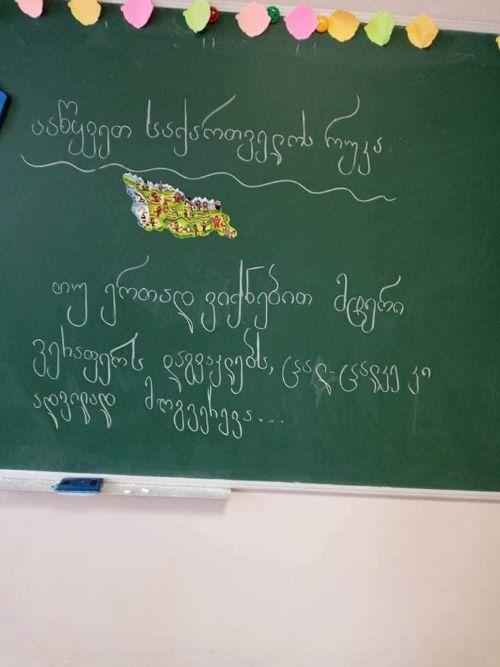 ააწყვეთ საქართველოს რუკა...
თუ ერთად ვიქნებით მტერი
ვერაფერს დაგვაკლებს, ცალ-ცალკე კი
ადვილად მოგვერევა...